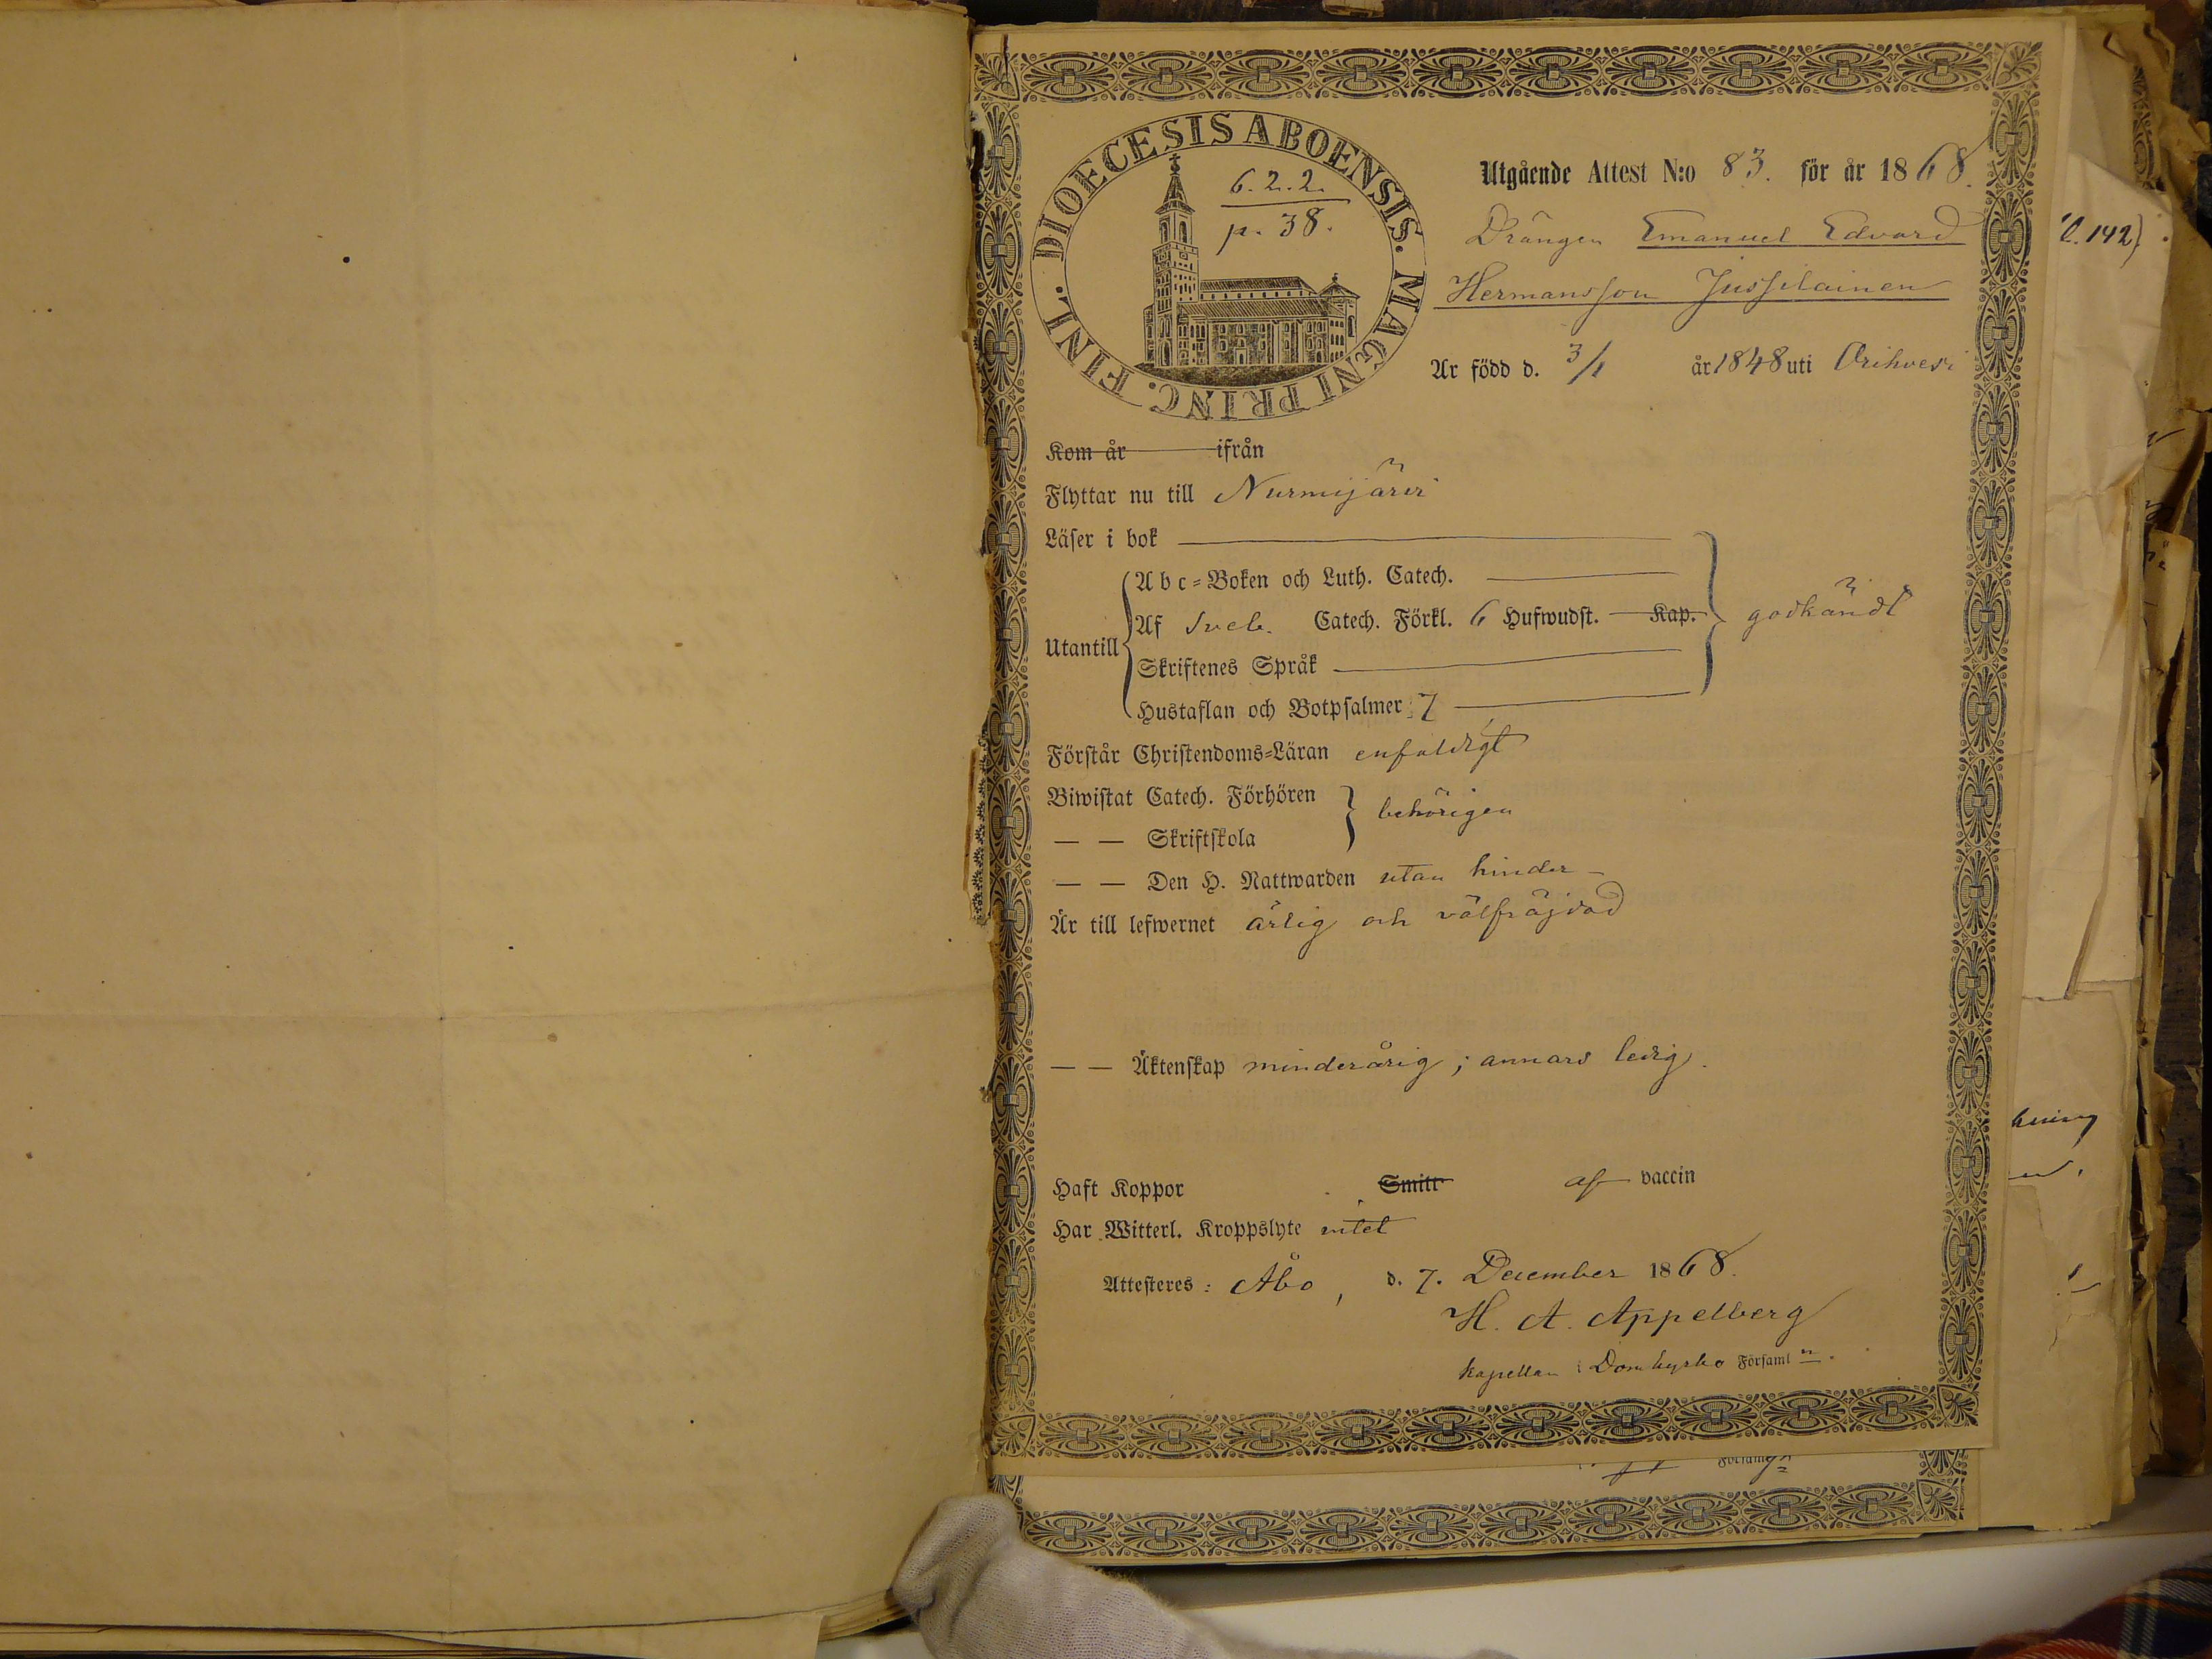 DIOECESIS ABOENSIS. MAGNI PRINC. FINL.
6.2.2.
p. 38.
Utgående Attest N:o 83. för år 1868.
Drängen Emanuel Edvard
Hermansson Jussilainen
Är född d. 3/1 år 1848 uti Orihvesi
Kom år ifrån
Flyttar nu till Nurmijärvi
Läser i bok
Utantill
Abc-Boken och Luth. Catech.
Af Sveb. Catech. Förkl. 6 Hufwudst. Kap.
godkändt
Skriftenes Språk
Hustaflan och Botpsalmer 7
Förstår Christendoms-Läran enfaldigt
Biwistat Catech. Förhören
behörigen
— — Skriftskola
— — Den H. Nattwarden utan hinder
Är till lefwernet ärlig och välfräjdad
— — Äktenskap minderårig; annars ledig.
Haft Koppor Smitt af vaccin
Har Witterl. Kroppslyte intet
Attesteres: Åbo, d. 7. December 1868.
H. A. Appelberg
Kapellan i Domkyrko Församl n.
142)